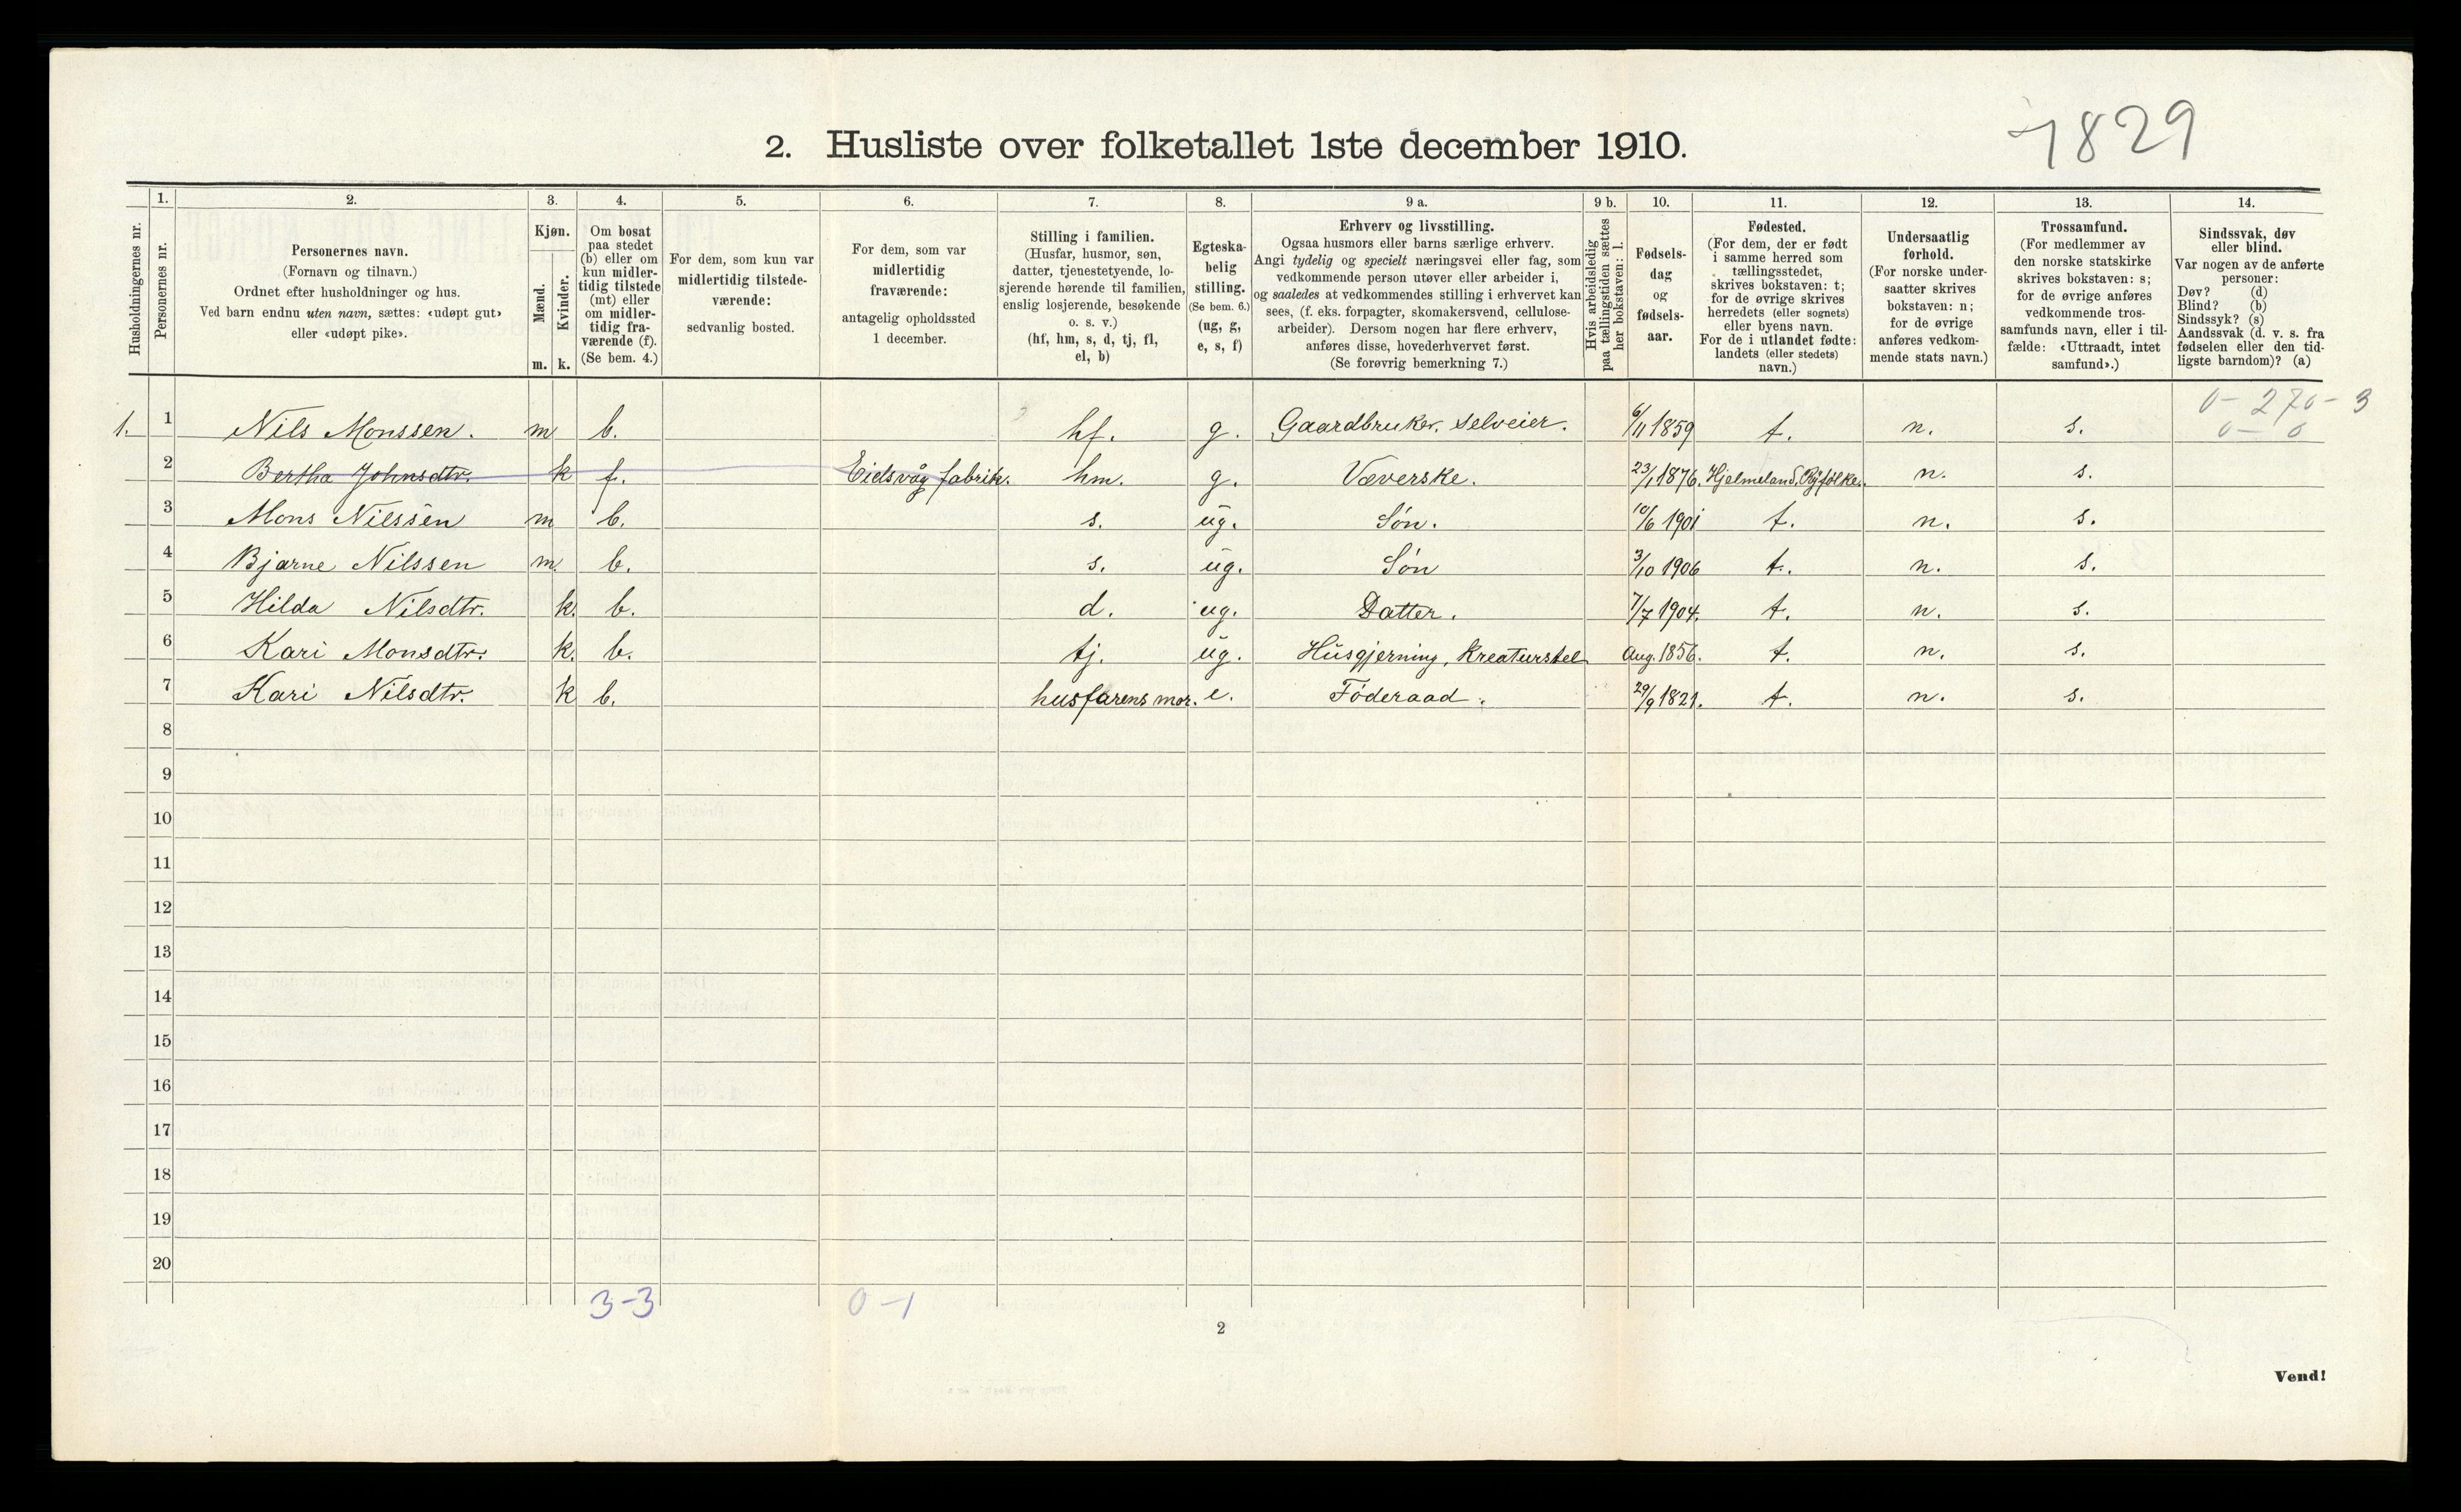 7829
2. Husliste over folketallet 1ste december 1910.
Husholdningernes nr.
1. Personernes nr.
2. Personernes navn. (Fornavn og tilnavn.) Ordnet efter husholdninger og hus. Ved barn endnu uten navn, sættes: «udøpt gut» eller «udøpt pike».
3. Kjøn. Mænd. m. Kvinder. k.
4. Om bosat paa stedet (b) eller om kun midlertidig tilstede (mt) eller om midlertidig fraværende (f). (Se bem. 4.)
5. For dem, som kun var midlertidig tilstedeværende: sedvanlig bosted.
6. For dem, som var midlertidig fraværende: antagelig opholdssted 1 december.
7. Stilling i familien. (Husfar, husmor, søn, datter, tjenestetyende, losjerende hørende til familien, enslig losjerende, besøkende o. s. v.) (hf, hm, s, d, tj, fl, el, b)
8. Egteskabelig stilling. (Se bem. 6.) (ug, g, e, s, f)
9 a. Erhverv og livsstilling. Ogsaa husmors eller barns særlige erhverv. Angi tydelig og specielt næringsvei eller fag, som vedkommende person utøver eller arbeider i, og saaledes at vedkommendes stilling i erhvervet kan sees, (f. eks. forpagter, skomakersvend, cellulosearbeider). Dersom nogen har flere erhverv, anføres disse, hovederhvervet først. (Se forøvrig bemerkning 7.)
9 b. Hvis arbeidsledig paa tællingstiden sættes her bokstaven: l.
10. Fødselsdag og fødselsaar.
11. Fødested. (For dem, der er født i samme herred som tællingsstedet, skrives bokstaven: t; for de øvrige skrives herredets (eller sognets) eller byens navn. For de i utlandet fødte: landets (eller stedets) navn.)
12. Undersaatlig forhold. (For norske undersaatter skrives bokstaven: n; for de øvrige anføres vedkommende stats navn.)
13. Trossamfund. (For medlemmer av den norske statskirke skrives bokstaven: s; for de øvrige anføres vedkommende trossamfunds navn, eller i tilfælde: «Uttraadt, intet samfund».)
14. Sindssvak, døv eller blind. Var nogen av de anførte personer: Døv? (d) Blind? (b) Sindssyk? (s) Aandssvak (d. v. s. fra fødselen eller den tidligste barndom)? (a)
0 - 270 - 3
0 - 0
1. 1 Nils Monssen. m b. hf. g. Gaardbruker, selveier. 6/11 1859 t. n. s.
2 Bertha Johnsdtr. k f. Eidsvåg fabrik. hm. g. Væverske. 23/1 1876. Hjelmeland, Ryfolke. n. s.
3 Mons Nilssen m b. s. ug. Søn. 10/6 1901 t. n. s.
4 Bjarne Nilssen m. b. s. ug. Søn 3/10 1906 t. n. s.
5 Hilda Nilsdtr. k. b. d. ug. Datter. 7/7 1904. t. n. s.
6 Kari Monsdtr. k. b. tj. ug. Husgjerning, kreaturstel Aug. 1856. t. n. s.
7 Kari Nilsdtr. k b. husfarens mor. e. Føderaad. 29/9 1821. t. n. s.
8
9
10
11
12
13
14
15
16
17
18
19
20
3-3 0-1
2
Vend!